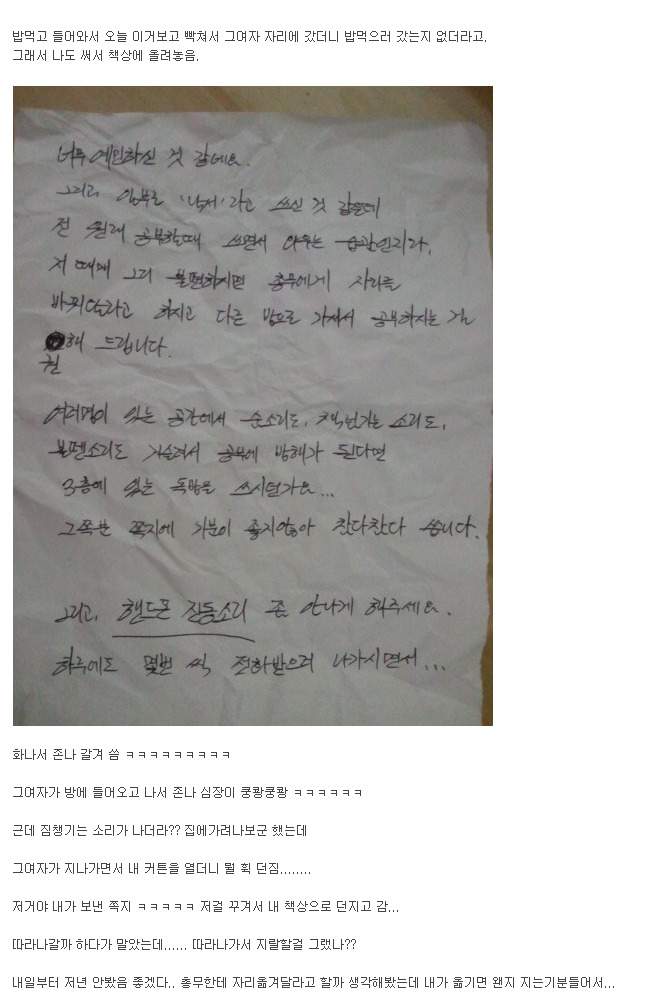 밥먹고 들어와서 오늘 이거보고 빡쳐서 그여자 자리에 갔더니 밥먹으러 갔는지 없더라고.
그래서 나도 써서 책상에 올려놓음.
너무 예민하신 것 같네요.
그리고 일부로 '낙서'라고 쓰신 것 같은데
전 원래 공부할때 쓰면서 외우는 습관인지라,
저 때매 그리 불편하시면 총무에게 자리를
바꿔달라고 하시고 다른 방으로 가셔서 공부하시는 걸
권해 드립니다.
여러명이 있는 공간에서 숨소리도, 책넘기는 소리도,
볼펜소리도 거슬려서 공부에 방해가 된다면
3층에 있는 독방을 쓰시던가요...
그쪽분 쪽지에 기분이 좋지않아 참다참다 씁니다.
그리고, 핸드폰 진동소리 좀 안나게 해주세요.
하루에도 몇번 씩 전화받으러 나가시면서...
화나서 존나 갈겨 씀 ㅋㅋㅋㅋㅋㅋㅋㅋㅋ
그여자가 방에 들어오고 나서 존나 심장이 쿵쾅쿵쾅 ㅋㅋㅋㅋㅋㅋ
근데 짐챙기는 소리가 나더라?? 집에가려나보군 했는데
그여자가 지나가면서 내 커튼을 열더니 뭘 휙 던짐........
저거야 내가 보낸 쪽지 ㅋㅋㅋㅋㅋ 저걸 꾸겨서 내 책상으로 던지고 감...
따라나갈까 하다가 말았는데...... 따라나가서 지랄할걸 그랬나??
내일부터 저년 안봤음 좋겠다.. 총무한테 자리옮겨달라고 할까 생각해봤는데 내가 옮기면 왠지 지는기분들어서...